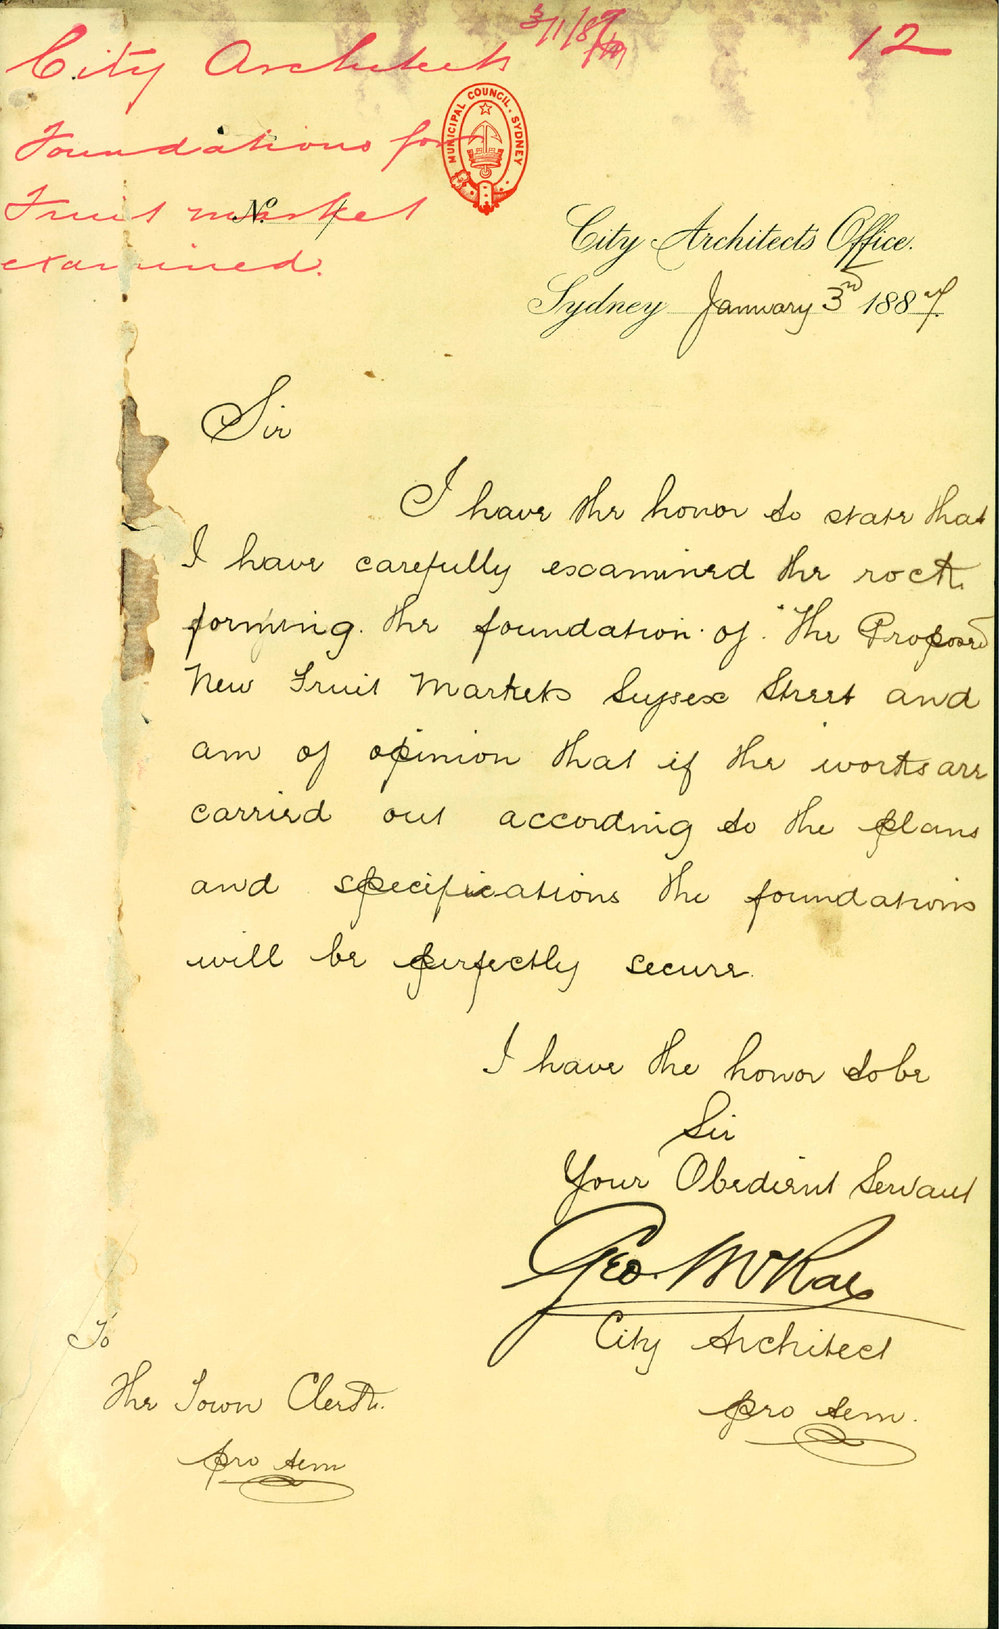 3/1/89
12
City Architect
Foundations for
Fruit market
examined.
MUNICIPAL COUNCIL. SYDNEY
No.
City Architect's Office.
Sydney January 3rd 1889.
Sir
I have the honor to state that
I have carefully examined the rock
forming the foundation of "The Proposed
New Fruit Markets Sussex Street and
am of opinion that if the works are
carried out according to the plans
and specifications the foundations
will be perfectly secure.
I have the honor to be
Sir
Your Obedient Servant
Geo. McRae
City Architect
pro tem.
To
The Town Clerk.
pro tem